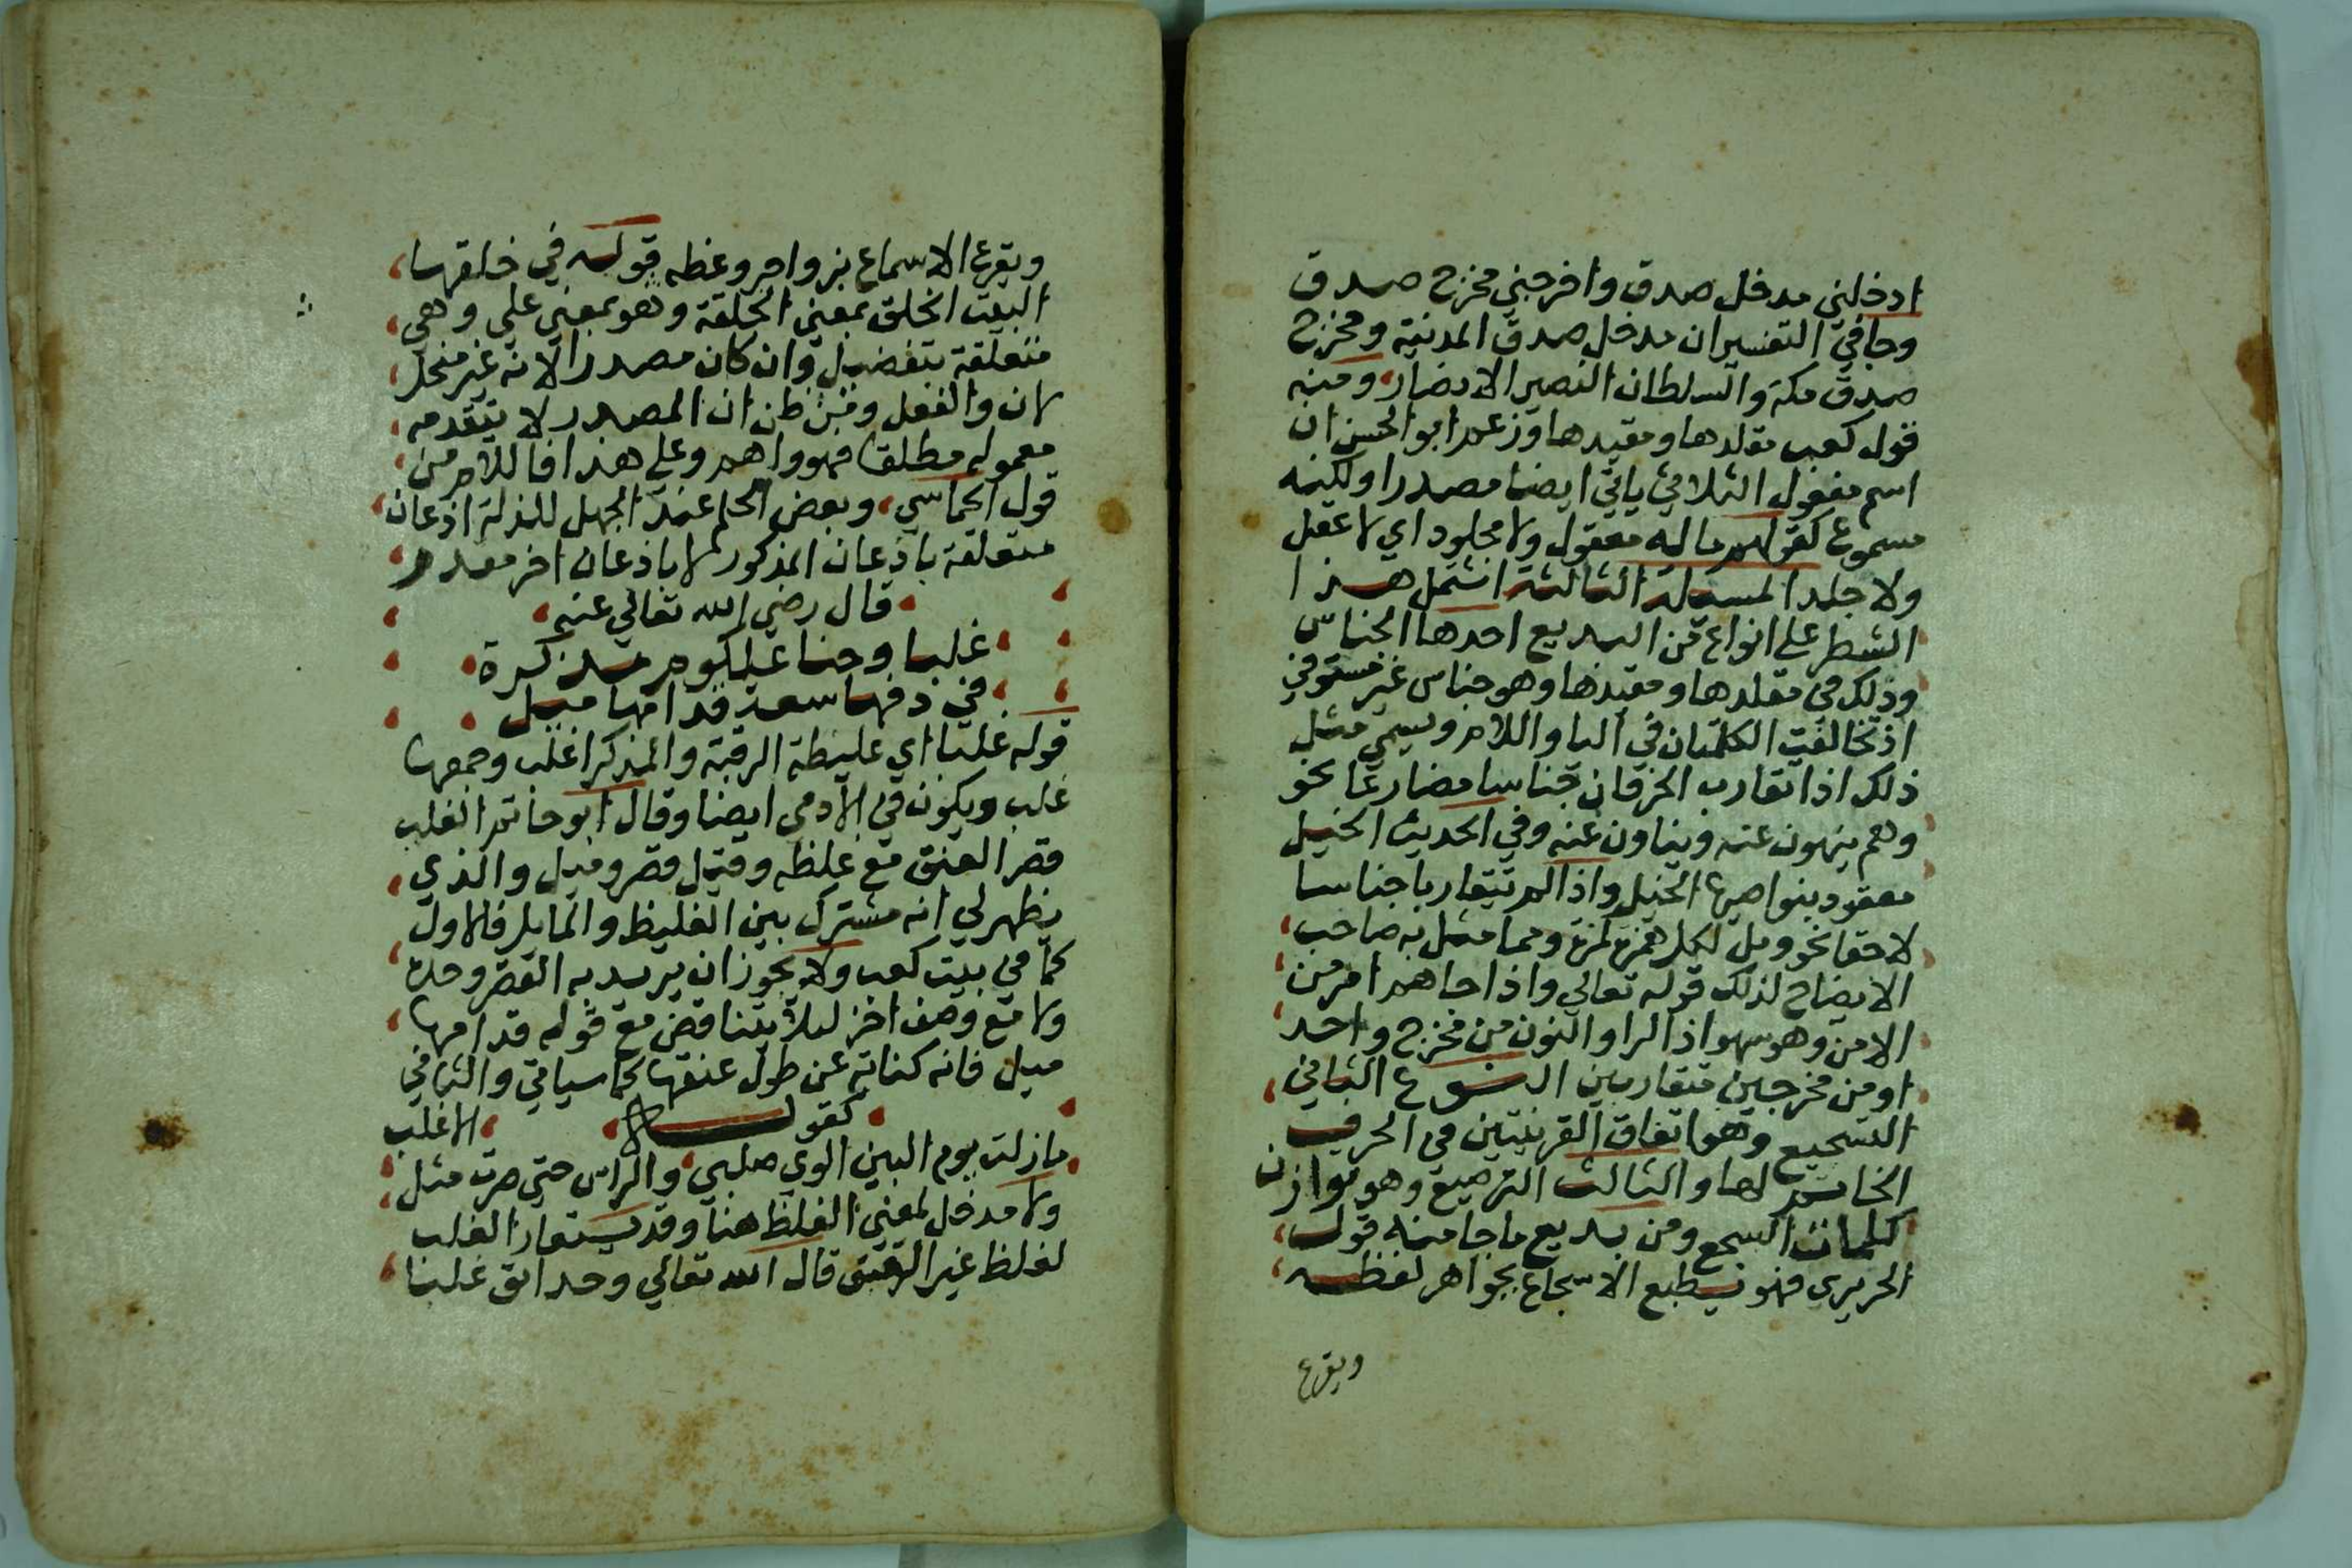 ادخلني مدخل صدق واخرجني مخرج صدق
وجا في التفسير ان مدخل صدق المدينة ومخرج
صدق مكة والسلطان النصير الانصار ومنه
قول كعب مقلدها ومقيدها وزعم ابو الحسن ان
اسم مفعول الثلاثي ياتي ايضا مصدرا ولكنه
مسموع كقولهم ماله معقول ولا مجلود اي لا عقل
ولا جلد المسئلة الثالثة اشتمل هذا
الشطر على انواع من البديع احدها الجناس
وذلك في مقلدها ومقيدها وهو جناس غير مستوفي
اذ تخالفت الكلمتان في اليا واللام ويسمي مثل
ذلك اذا تقارب الحرفان جناسا مضارعا نحو
وهم ينهون عنه وينأون عنه وفي الحديث الخيل
معقود بنواصيها الخيل واذا لم تتقاربا جناسا
لاحقا نحو ويل لكل همزة لمزة ومما مثل به صاحب
الايضاح لذلك قوله تعالي واذا جاهم امر من
الامن وهو سهو اذ الرا والنون من مخرج واحد
او من مخرجين متقاربين النوع الثاني
التسجيع وهو اتفاق القرينتين في الحرف
الخاتم لها والثالث الترصيع وهو توازن
كلمات السجع ومن بديع ما جا منه قول
الحريري فهو يطبع الاسجاع بجواهر لفظه
ويقرع
ويقرع الاسماع بزواجر وعظه قوله في خلقها
البيت الخلق بمعني الخلقة وهو بمعني علي وهي
متعلقة بتفضيل وان كان مصدرا لانه غير منحل
لان والفعل ومن ظن ان المصدر لا يتقدمه
معموله مطلقا فهو واهم وعلي هذا فاللام من
قول الحماسي وبعض الحلم عند الجهل للذلة اذعان
متعلقة باذعان المذكور لا باذعان اخر مقدر
قال رضي الله تعالي عنه
غلبا وجنا علكوم مذكرة
في دفها سعة قدامها ميل
قوله غلبا اي غليظة الرقبة والمذكر اغلب وجمعها
غلب ويكون في الادمي ايضا وقال ابو حاتم الغلب
قصر العنق مع غلظه وقيل قصر وميل والذي
يظهر لي انه مشترك بين الغليظ والمايل فالاول
كما في بيت كعب ولا يجوز ان يريد به القصر وحده
ولا مع وصف اخر ليلا يتناقض مع قوله قدامها
ميل فانه كناية عن طول عنقها كما سياتي والثاني
كقوله
ما زلت يوم البين الوي صلبي والراس حتي صرت مثل الاغلب
ولا مدخل لمعني الغلظ هنا وقد يستعار الغلب
لغلظ غير العنق قال الله تعالي وحدائق غلبا